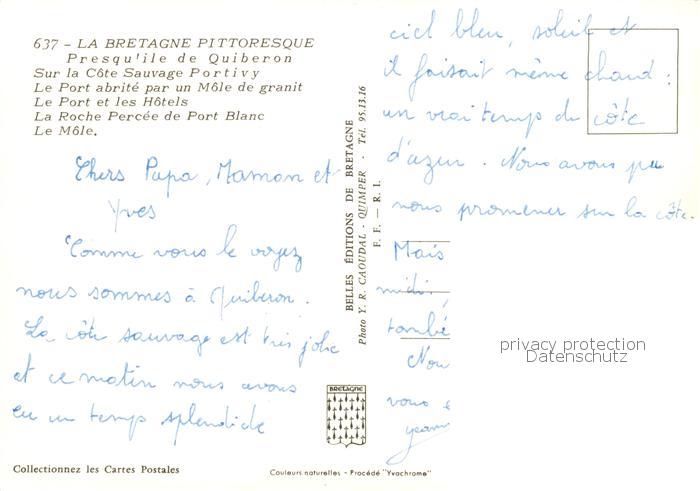 637 - LA BRETAGNE PITTORESQUE
Presqu'ile de Quiberon
Sur la Côte Sauvage Portivy
Le Port abrité par un Môle de granit
Le Port et les Hôtels
La Roche Percée de Port Blanc
Le Môle.
Chers Papa, Maman et
Yves
Comme vous le voyez
nous sommes à Quiberon.
La côte sauvage est très jolie
et ce matin nous avons
eu un temps splendide
BELLES ÉDITIONS DE BRETAGNE
Photo Y. R. CAOUDAL - QUIMPER - Tél. 95.13.16
F. F. — R. I.
ciel bleu, soleil et
il faisait même chaud :
un vrai temps de côte
d'azur. Nous avons pu
nous promener sur la côte.
Mais
midi,
tombé
Nou
vous e
privacy protection
Datenschutz
BRETAGNE
Collectionnez les Cartes Postales
Couleurs naturelles - Procédé "Yvachrome"